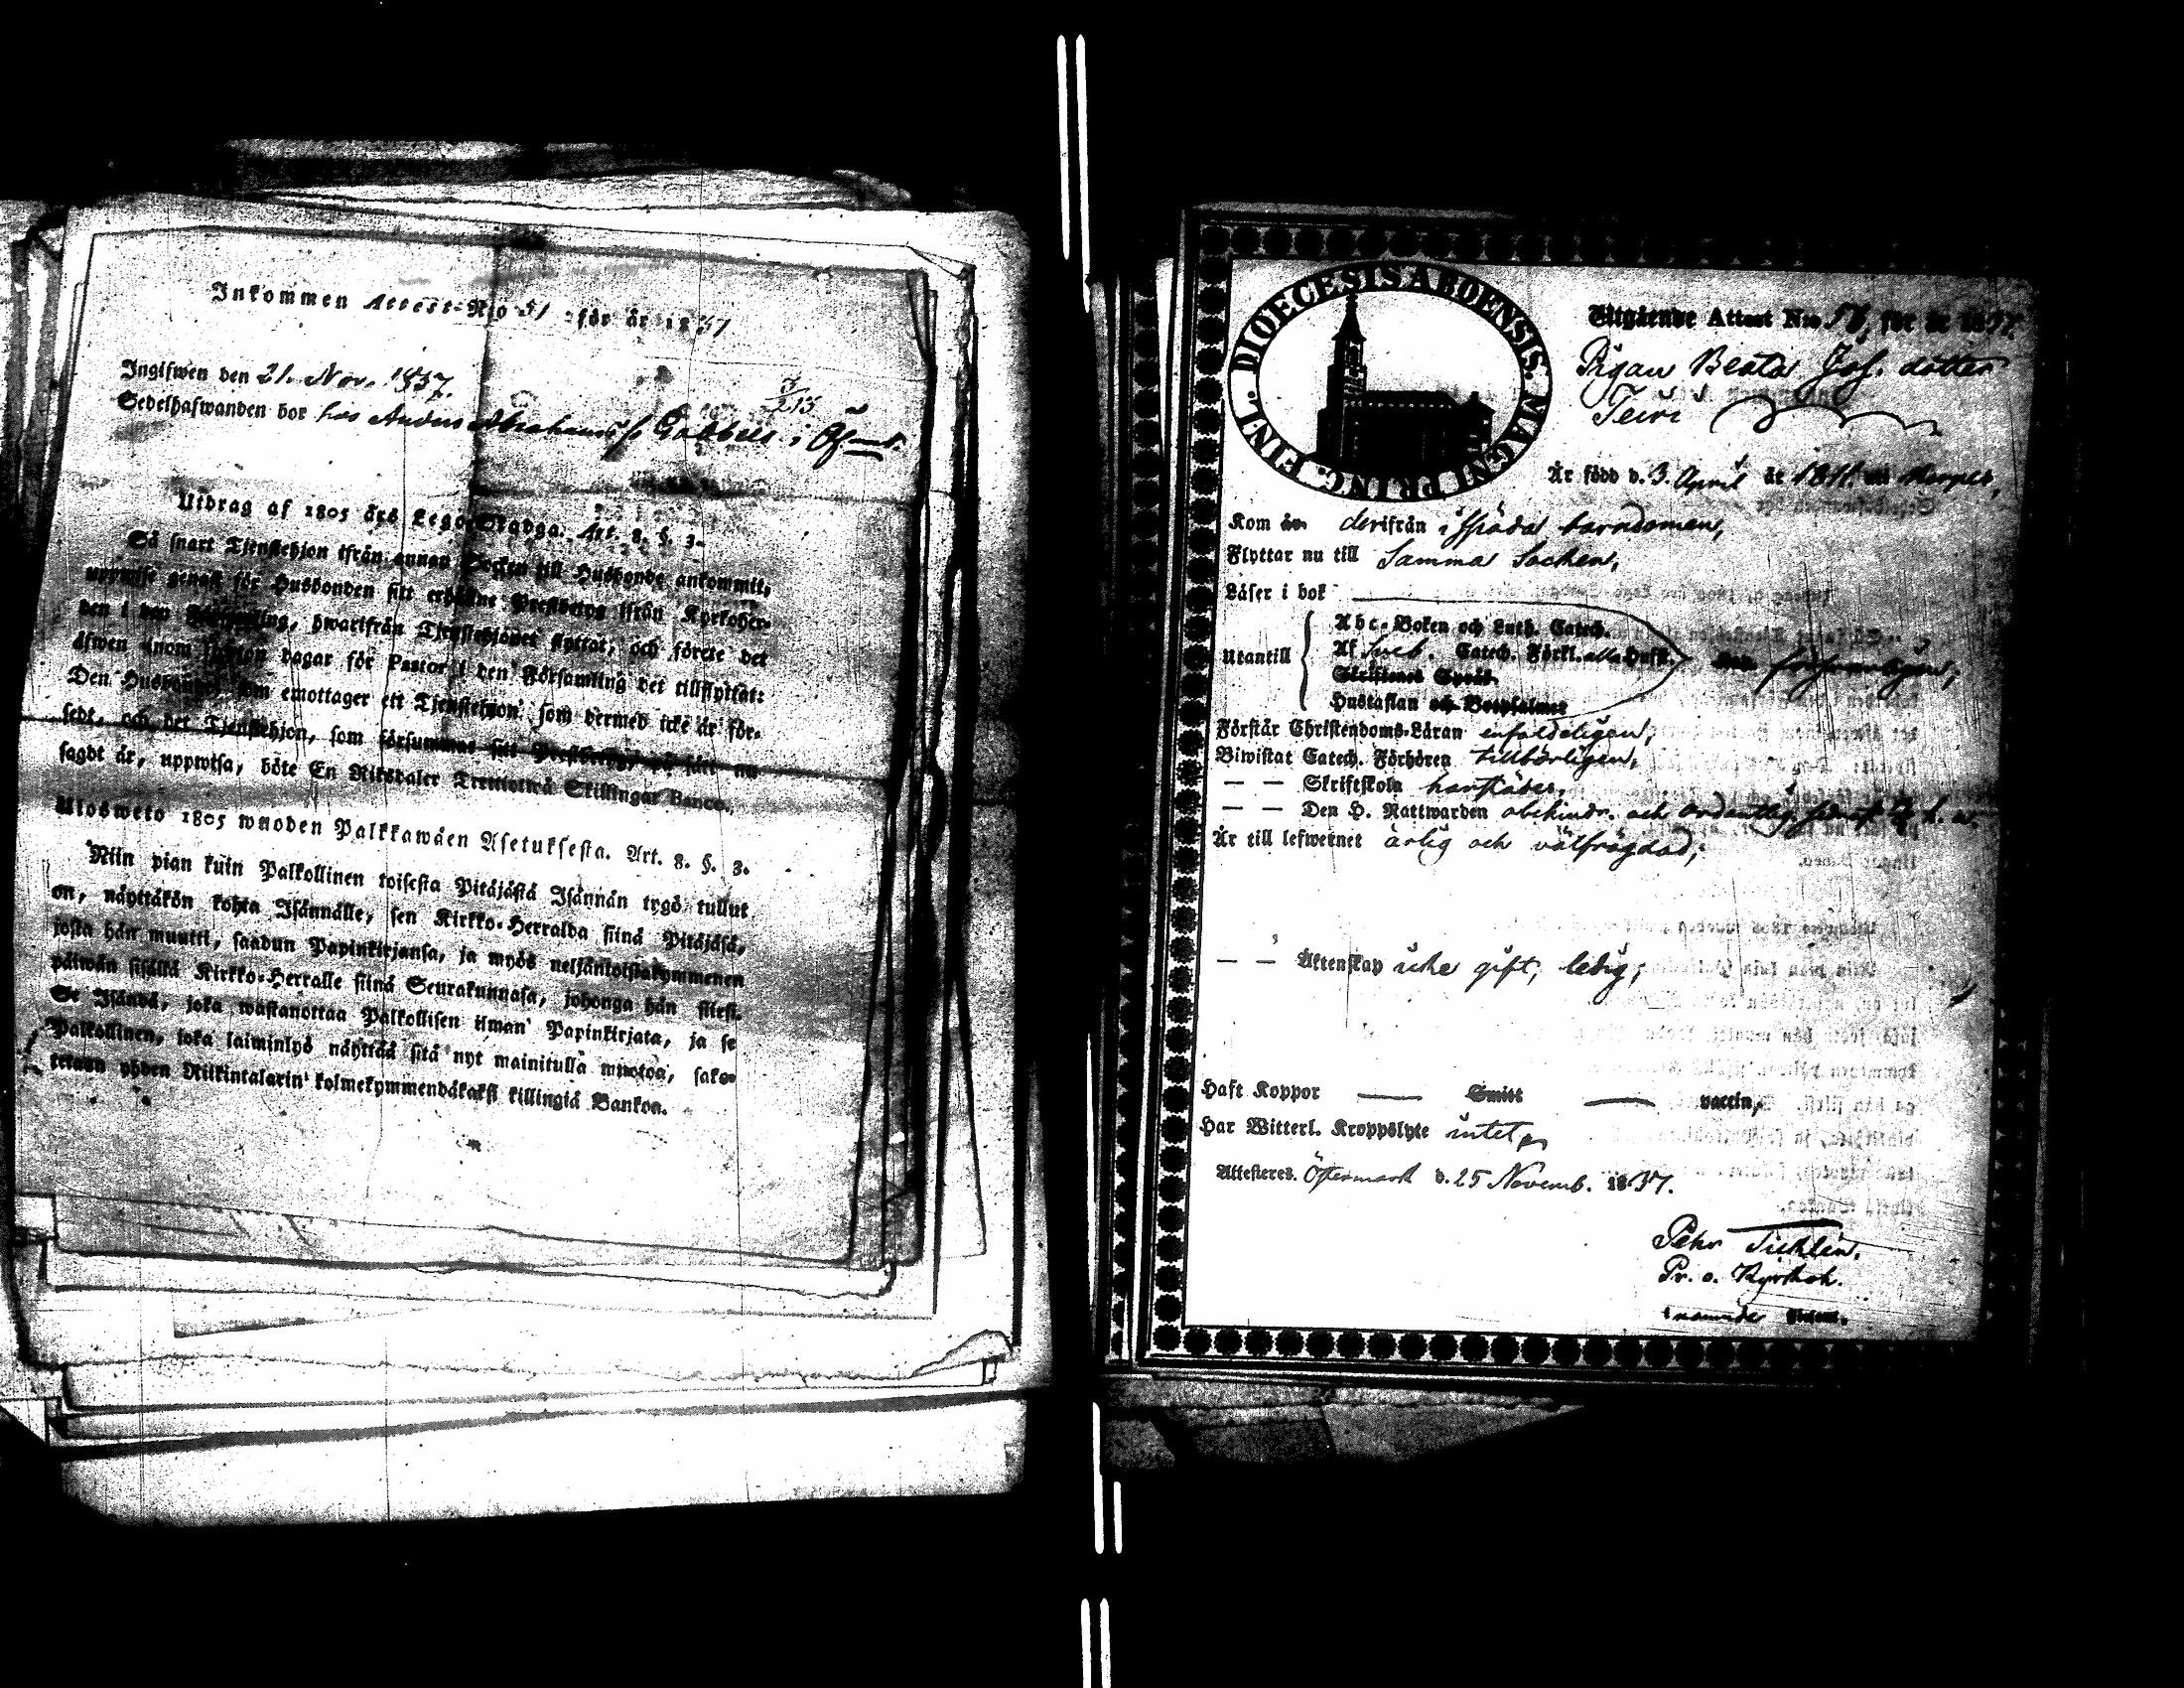 Inkommen Attest-N:o 51 för år 1837
Ingifwen den 21. Nov. 1837.
Sedelhafwanden bor hos Anders Abrahamss i
Utdrag af 1805 års Lego-Stadga. Art. 8. §. 3.
Så snart Tjenstehjon ifrån annan Socken till Husbonde ankommit,
uppwise genast för Husbonden sitt erhållne Prestbetyg ifrån Kyrkoher-
den i den Församling, hwarifrån Tjenstehjonet flyttat, och förete det
äfwen inom fjorton dagar för Pastor i den Församling det tillflyttat:
Den Husbonde, som emottager ett Tjenstehjon, som dermed icke är för-
sedt, och det Tjenstehjon, som försummat sitt Prestbetyg, på sätt nu
sagdt är, uppwisa, böte En Riksdaler Trettiotwå Skillingar Banco.
Ulosweto 1805 wuoden Palkkawäen Asetuksesta. Art. 8. §. 3.
Niin pian kuin Palkollinen toisesta Pitäjästä Isännän tygö tullut
on, näyttäkön kohta Isännälle, sen Kirkko-Herralda siinä Pitäjäsä,
josta hän muutti, saadun Papinkirjansa, ja myös neljäntoistakymmenen
päiwän sisällä Kirkko-Herralle siinä Seurakunnasa, johonga hän siirsi.
Se Isändä, joka wastanottaa Palkollisen ilman Papinkirjata, ja se
Palkollinen, joka laiminlyö näyttää sitä nyt mainitulla muotoa, sako-
tetaan yhden Riikintalarin kolmekymmendäkaksi killingiä Bankoa.
DIOECESIS ABOENSIS. MAGNI PRINC. FINL.
Utgående Attest N:o 58, för år 1837.
Pigan Beata Joh. dotter
Teiri
Är född d. 3. April år 1811.
Kom derifrån i späda barndomen,
Flyttar nu till Samma Sochen,
Läser i bok
Utantill
Abc-Boken och Luth. Catech.
Af Sveb. Catech. Förkl. alla Hufst.
Skriftenes Språk.
Hustaflan och Botpsalmer
försvarligen,
Förstår Christendoms-Läran enfaldeligen,
Biwistat Catech. Förhören tillbörligen,
— — Skriftskola
— — Den H. Nattwarden obehindr. och ordentlig.
Är till lefwernet ärlig och välfrägdad;
— — Äktenskap icke gift, ledig;
Haft Koppor — Smitt — vaccin,
Har Witterl. Kroppslyte intet,
Attesteres. Östermark d. 25 Novemb. 1837.
Pehr Ticklén,
Pr. o. Kyrkoh.